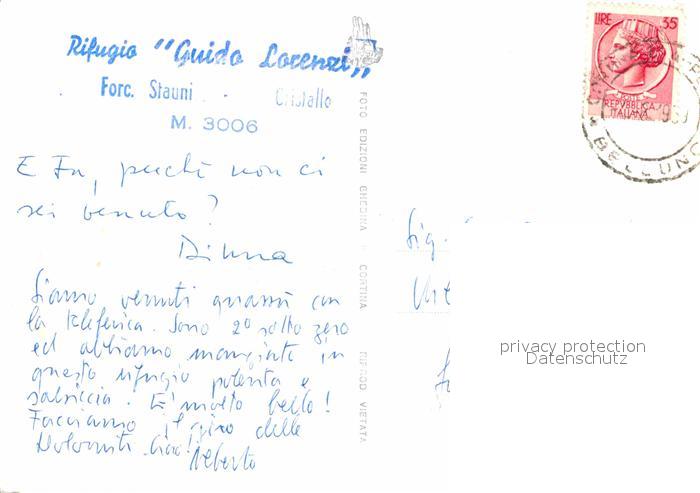 Rifugio "Guido Lorenzi"
Forc. Stauni - Cristallo
M. 3006
E Tu, perchè non ci
sei venuto?
Diana
Siamo venuti quassù con
la teleferica. Sono 2° sotto zero
ed abbiamo mangiato in
questo rifugio polenta e
salsiccia. E' molto bello!
Facciamo il giro delle
Dolomiti. Ciao!
Alberto
FOTO EDIZIONI GHEDINA - CORTINA RIPROD VIETATA
LIRE 35
REPVBBLICA
ITALIANA
BELLUNO
Sig.
privacy protection
Datenschutz